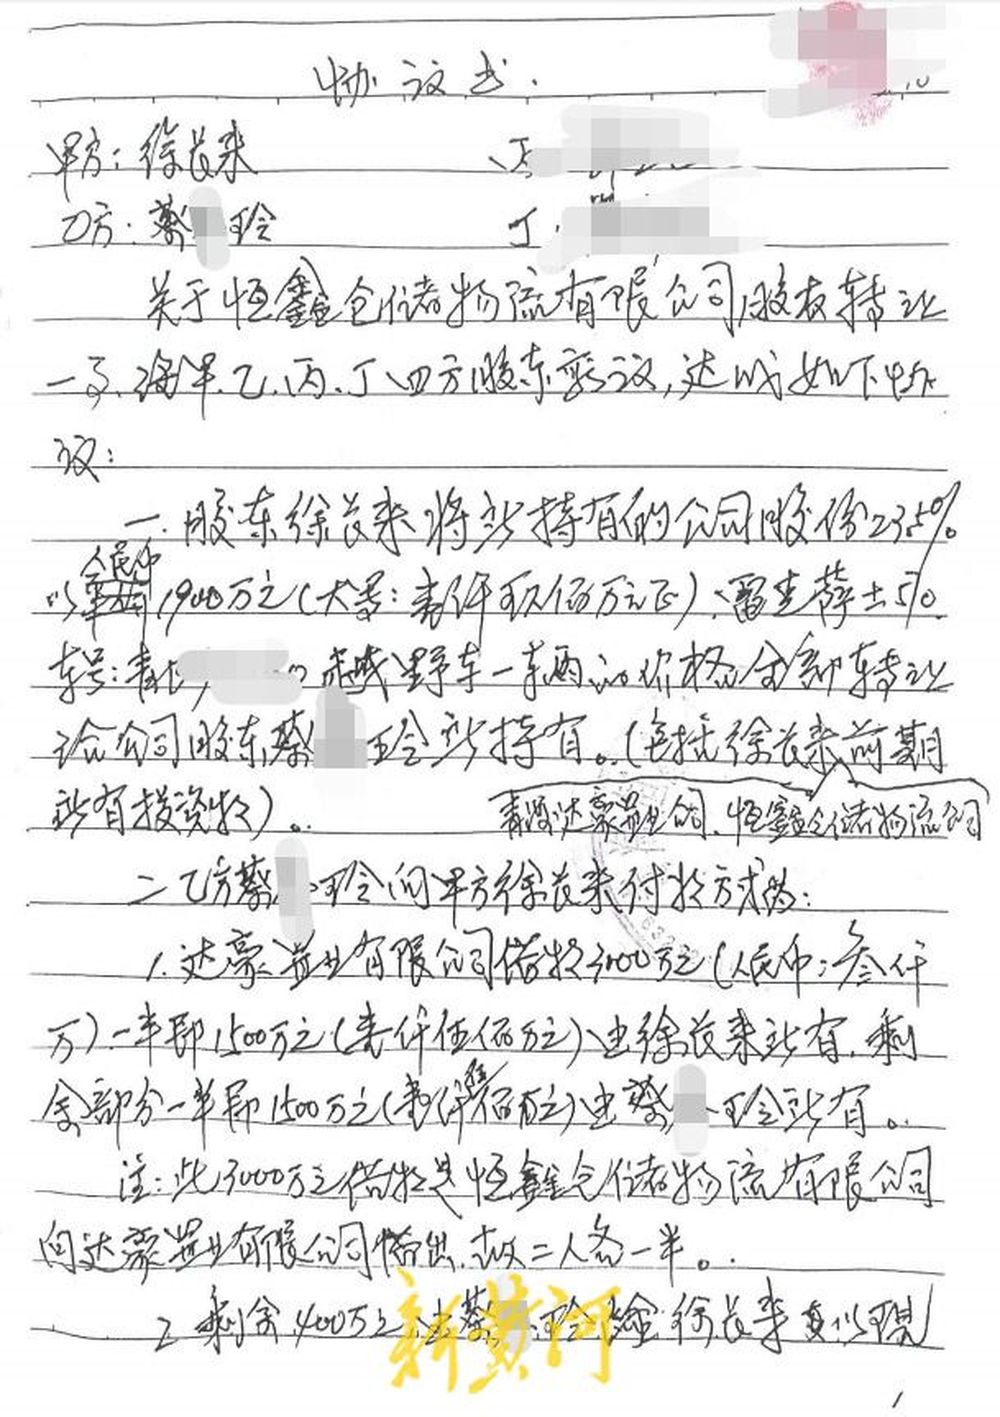 协议书.
甲方: 徐长来
乙方: 蔡 玲
丁
关于恒鑫仓储物流有限公司股权转让
一事.经甲.乙.丙.丁四方股东商议,达成如下协
议:
一.股东徐长来将所持有的公司股份23.5%
人民币
以 1900万元(大写:壹仟玖佰万元正)、雷克萨斯570
车号: 越野车一车两 价格全部转让
给公司股东蔡 玲所持有。(包括徐长来前期
所有投资款)。 青海达豪盐业公司、恒鑫仓储物流公司
二乙方蔡 玲向甲方徐长来付款方式为:
1.达豪盐业有限公司借款3000万元(人民币:叁仟
万)一半即1500万元(壹仟伍佰万元)由徐长来所有.剩
余部分一半即1500万元(壹仟 佰万元)由蔡 玲所有。
注:此3000万元借款是恒鑫仓储物流有限公司
向达豪盐业有限公司借出.故二人各一半。
2.剩余400万元由蔡 玲给徐长来 以现
1
新黄河